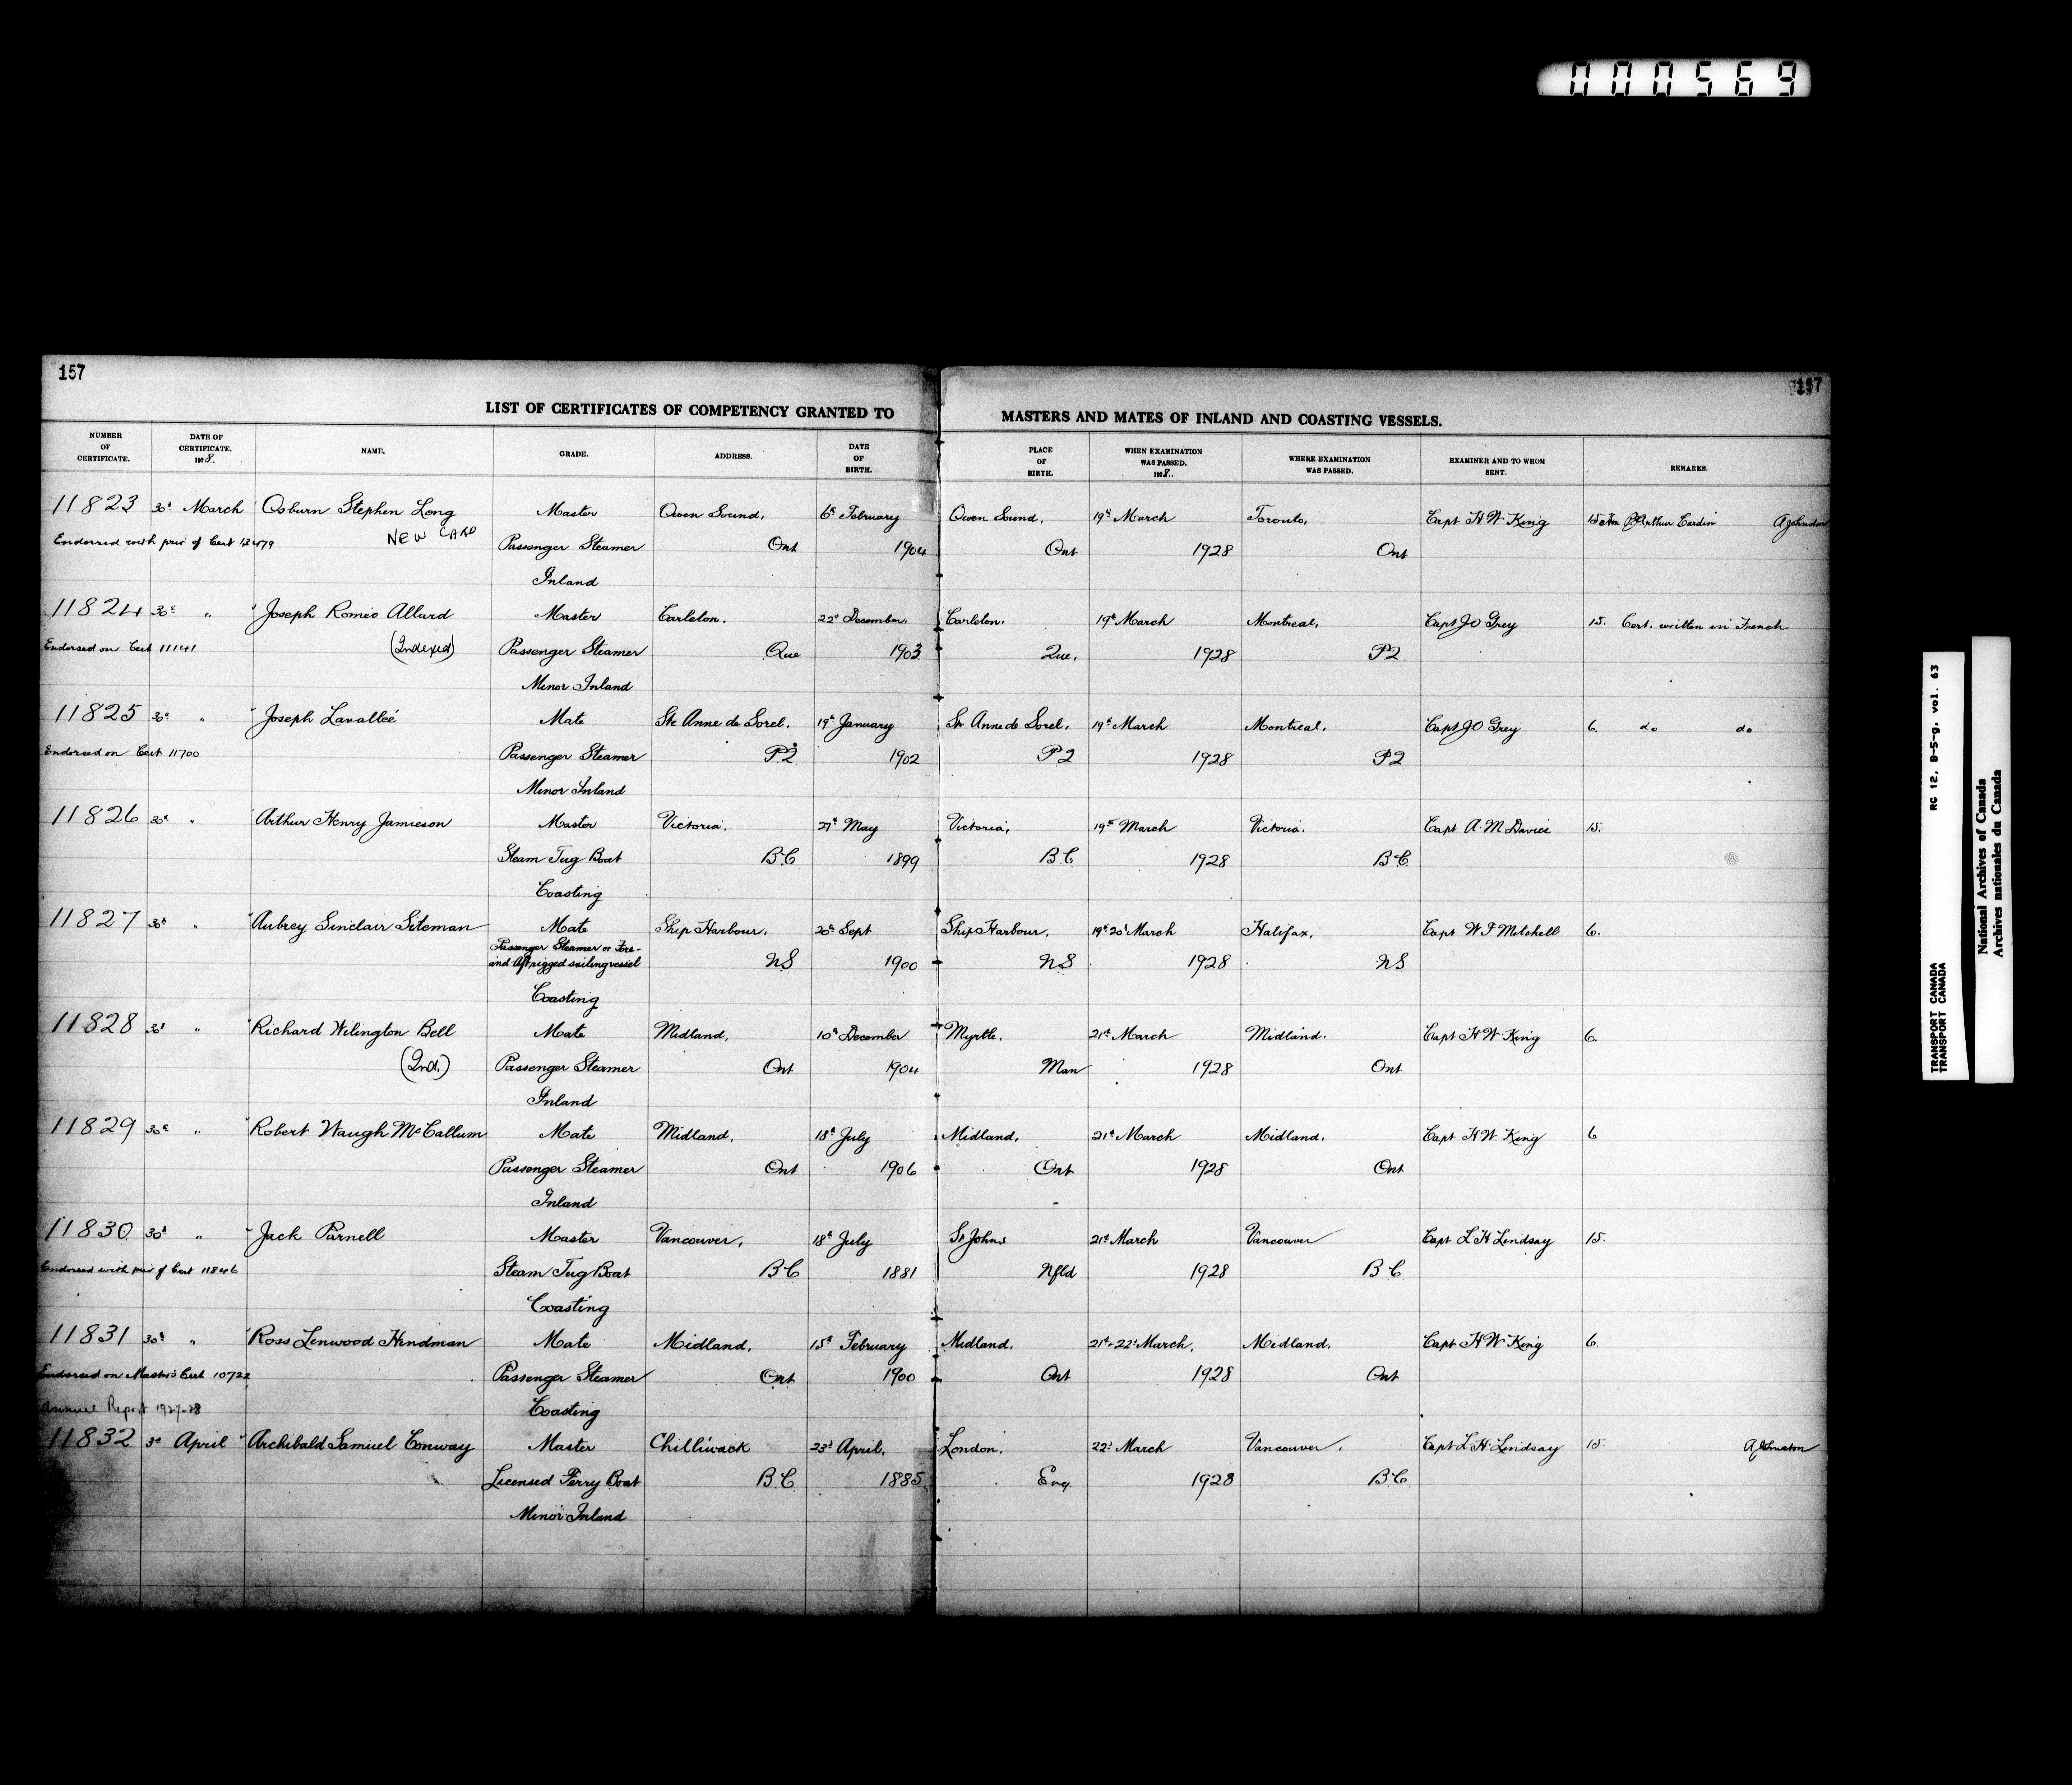 000569
157
157
LIST OF CERTIFICATES OF COMPETENCY GRANTED TO MASTERS AND MATES OF INLAND AND COASTING VESSELS.
NUMBER OF CERTIFICATE. DATE OF CERTIFICATE. 1928. NAME. GRADE. ADDRESS. DATE OF BIRTH. PLACE OF BIRTH. WHEN EXAMINATION WAS PASSED. 1928. WHERE EXAMINATION WAS PASSED. EXAMINER AND TO WHOM SENT. REMARKS.
11823 30th March Osburn Stephen Long Master Owen Sound, 6th February Owen Sound, 19th March Toronto, Capt H W King 15 Arthur Cardin A Johnston
Endorsed with priv of Cert 12479 NEW CARD Passenger Steamer Ont 1904 Ont 1928 Ont
Inland
11824 30th " Joseph Roméo Allard Master Carleton, 22nd December, Carleton, 19th March Montreal, Capt J O Grey 15. Cert. written in French
Endorsed on Cert 11141 (Indexed) Passenger Steamer Que 1903 Que. 1928 PQ
Minor Inland
11825 30th " Joseph Lavalleé Mate Ste Anne de Sorel, 19th January Ste Anne de Sorel, 19th March Montreal, Capt J O Grey 6. do do
Endorsed on Cert 11700 Passenger Steamer PQ 1902 PQ 1928 PQ
Minor Inland
11826 30th " Arthur Henry Jamieson Master Victoria, 21st May Victoria, 19th March Victoria, Capt A. M Davies 15.
Steam Tug Boat B.C 1899 B.C 1928 B.C.
Coasting
11827 30th " Aubrey Sinclair Siteman Mate Ship Harbour, 20th Sept Ship Harbour, 19th 20th March Halifax, Capt W F Mitchell 6.
Passenger Steamer or Fore-
and Aft rigged sailing vessel NS 1900 NS 1928 NS
Coasting
11828 30th " Richard Wilington Bell Mate Midland, 10th December Myrtle, 21st March Midland, Capt H W King 6.
(Ind.) Passenger Steamer Ont 1904 Man 1928 Ont
Inland
11829 30th " Robert Waugh McCallum Mate Midland, 18th July Midland, 21st March Midland, Capt H W. King 6
Passenger Steamer Ont 1906 Ont 1928 Ont
Inland
11830 30th " Jack Parnell Master Vancouver, 18th July St Johns 21st March Vancouver Capt L H Lindsay 15.
Endorsed with priv of Cert 11846 Steam Tug Boat B.C 1881 Nfld 1928 B.C
Coasting
11831 30th " Ross Linwood Hindman Mate Midland, 15th February Midland, 21st-22nd March, Midland, Capt H W King 6.
Endorsed on Master's Cert 10722 Passenger Steamer Ont 1900 Ont 1928 Ont
Annual Report 1927-28 Coasting
11832 3rd April Archibald Samuel Conway Master Chilliwack 23rd April, London, 22nd March Vancouver, Capt L H Lindsay 15. A Johnston
Licensed Ferry Boat B.C 1885 Eng. 1928 B.C
Minor Inland
TRANSPORT CANADA RG 12, B-5-g, vol. 63
TRANSPORT CANADA
National Archives of Canada
Archives nationales du Canada